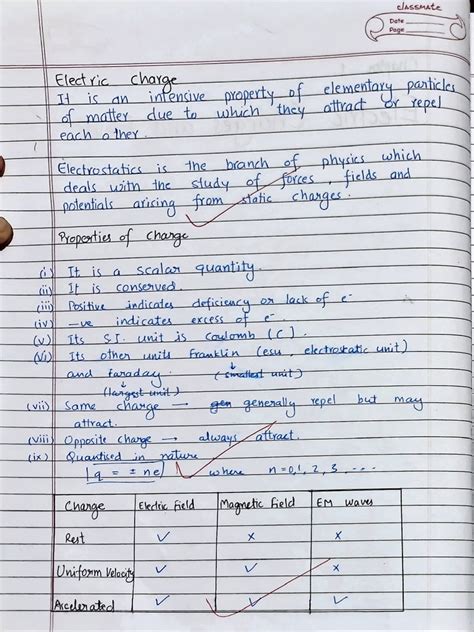 classmate
Date
Page
Electric Charge
It is an intensive property of elementary particles
of matter due to which they attract or repel
each other.
Electrostatics is the branch of physics which
deals with the study of forces, fields and
potentials aricing from static charges.
Properties of charge
(i) It is a scalar quantity.
(ii) It is conserved.
(iii) Positive indicates deficiency or lack of e⁻
(iv) -ve indicates excess of e⁻.
(v) Its S.I. unit is Coulomb (C).
(vi) Its other units Franklin (esu, electrostatic unit)
and faraday. (smallest unit)
(largest unit)
(vii) Same charge → generally repel but may
attract.
(viii) Opposite charge → always attract.
(ix) Quantised in nature
q = ± ne where n=0,1, 2, 3, ...
Charge Electric field Magnetic field EM waves
Rest ✓ x x
Uniform Velocity ✓ ✓ x
Accelerated ✓ ✓ ✓